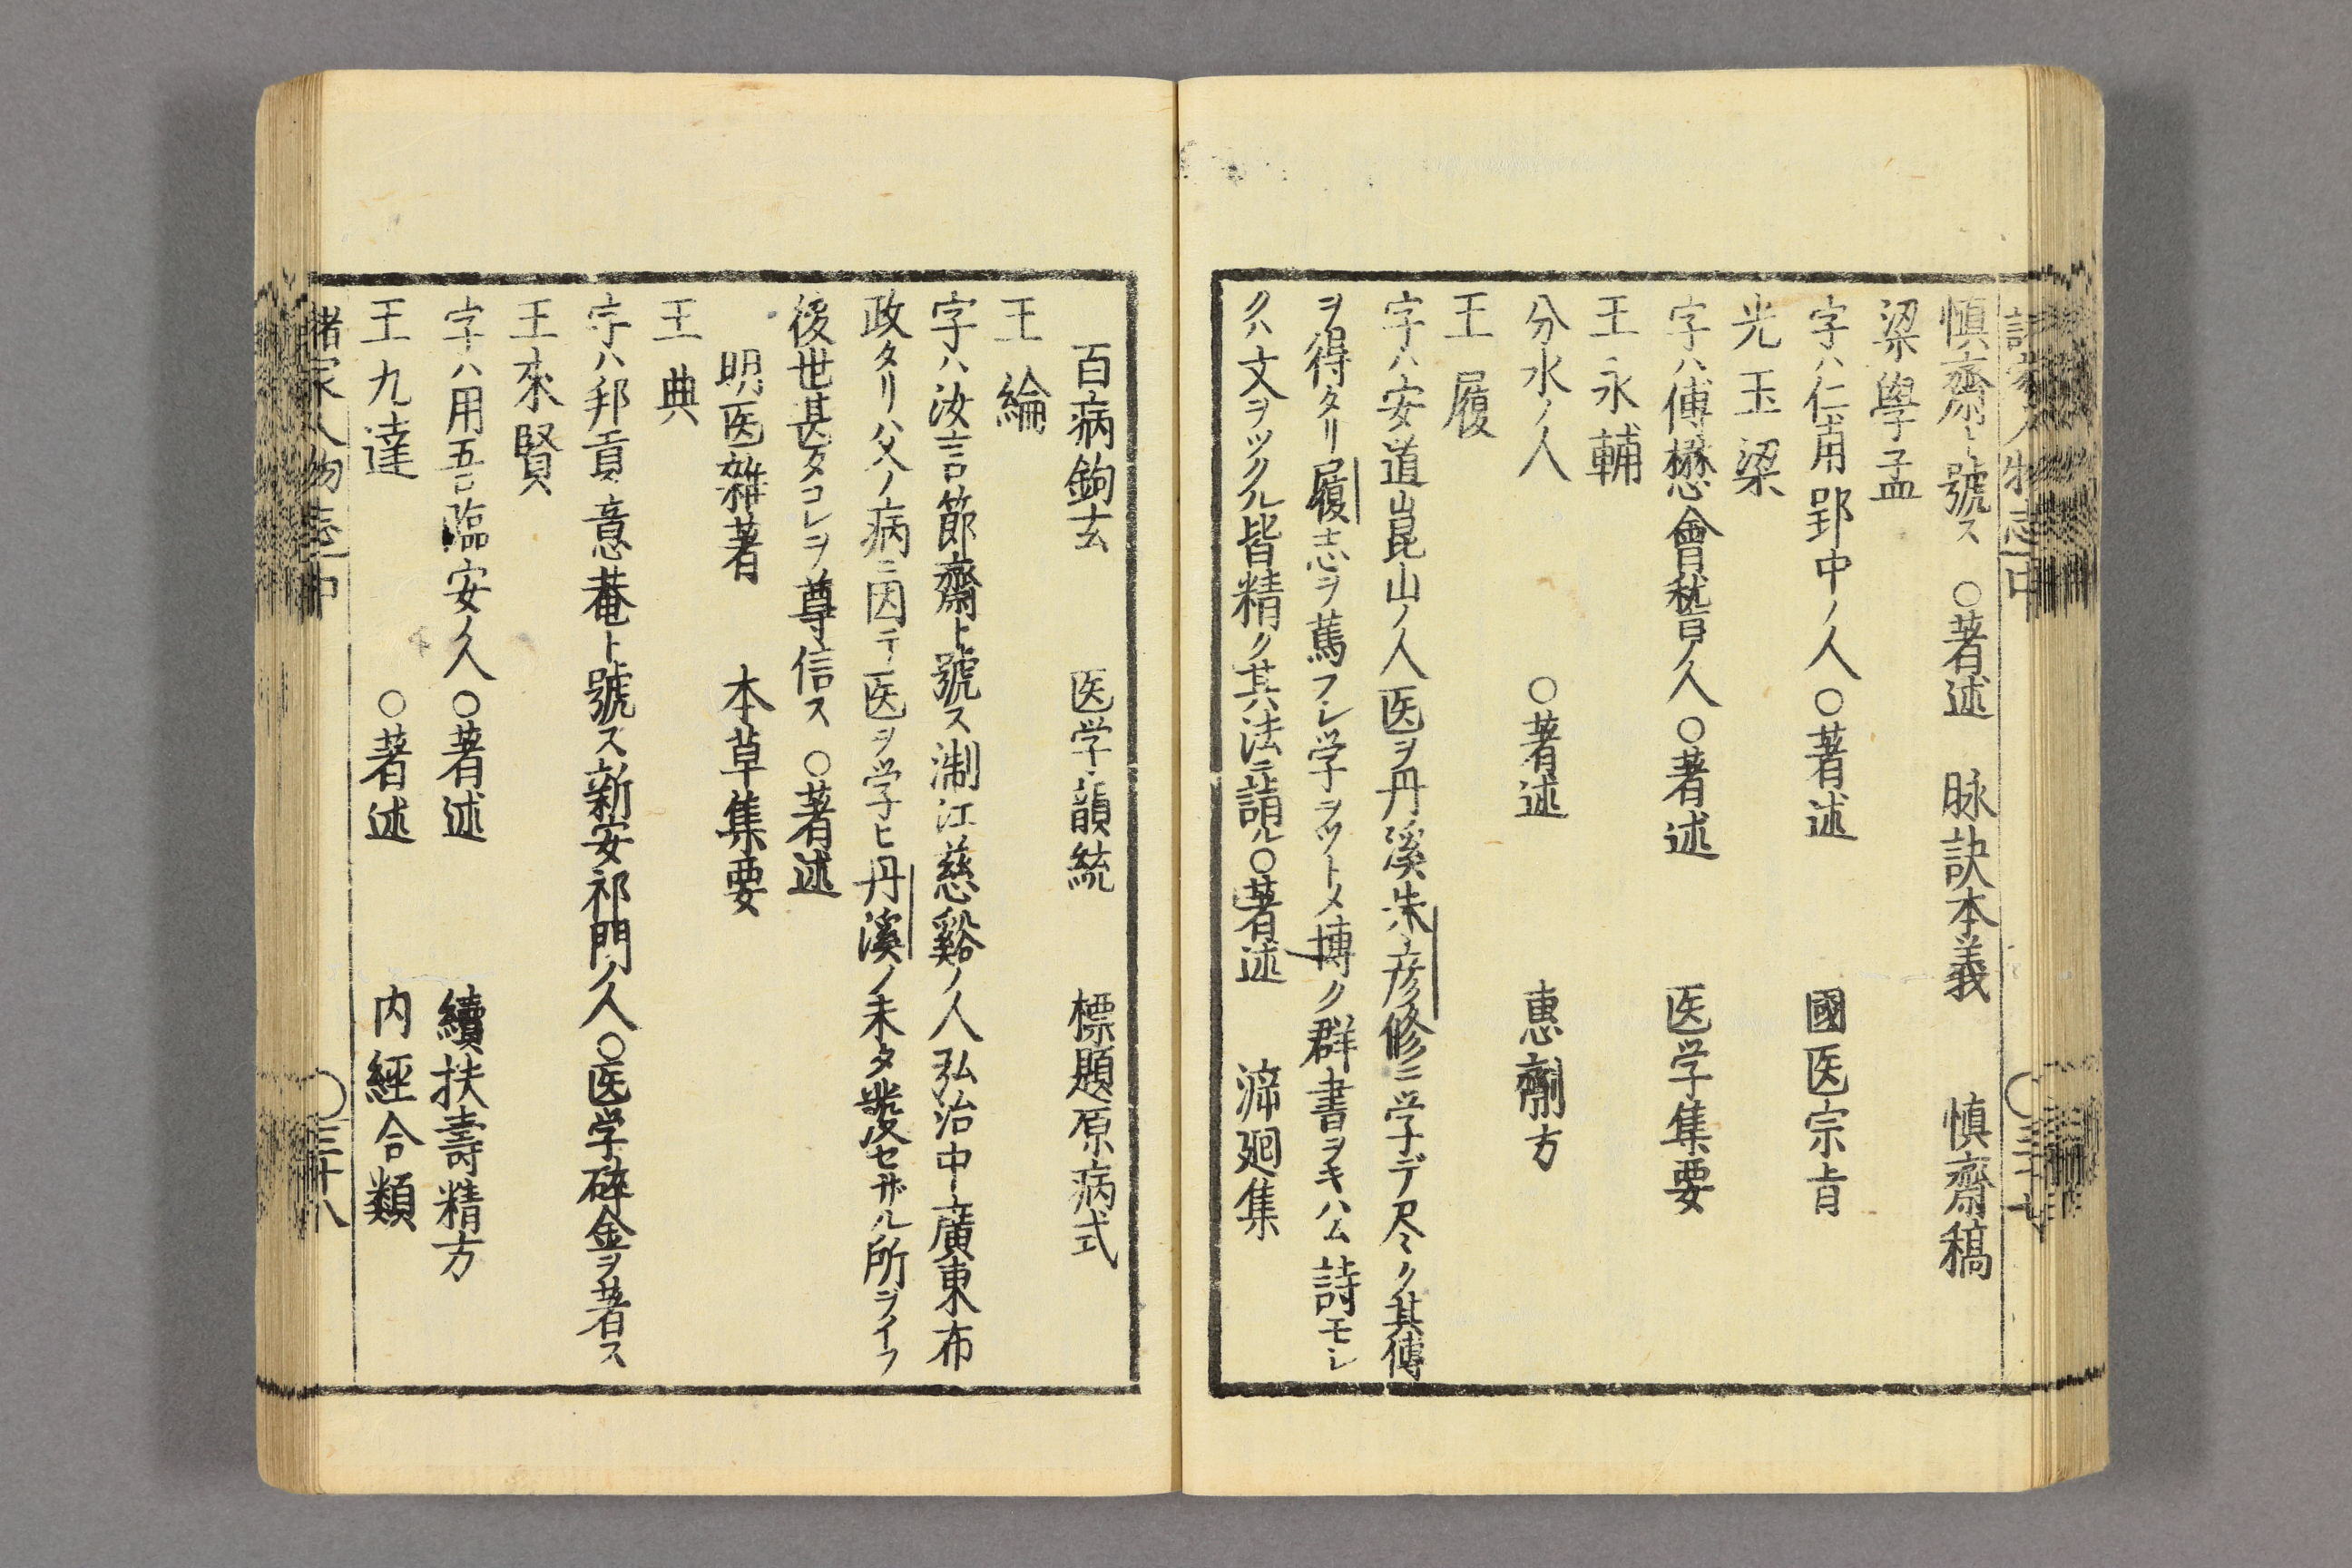 諸家人物志 中 ○三十七
慎齋ト號ス ○著述 脉訣本義 慎齋稿
梁學孟
字ハ仁甫郢中ノ人 ○著述 國医宗旨
光玉梁
字ハ傅懋會嵆ノ人 ○著述 医学集要
王永輔
分水ノ人 ○著述 惠劑方
王履
字ハ安道崑山ノ人医ヲ丹溪朱彦修ニ学デ尽ク其傳
ヲ得タリ履志ヲ篤フシ学ヲツトメ博ク群書ヲキハム詩モシ
クハ文ヲツクル皆精ク其法ニ詣ル○著述 泝廻集
百病鉤玄 医学韻統 標題原病式
王綸
字ハ汝言節齋ト號ス淛江慈谿ノ人弘治中廣東布
政タリ父ノ病ニ因テ医ヲ学ヒ丹溪ノ未タ發セザル所ヲイフ
後世甚タコレヲ尊信ス ○著述
明医雜著 本草集要
王典
字ハ邦貢意菴ト號ス新安祁門ノ人○医学碎金ヲ著ス
王來賢
字ハ用吾臨安ノ人 ○著述 續扶壽精方
王九達 ○著述 内經合類
諸家人物志 中 ○三十八